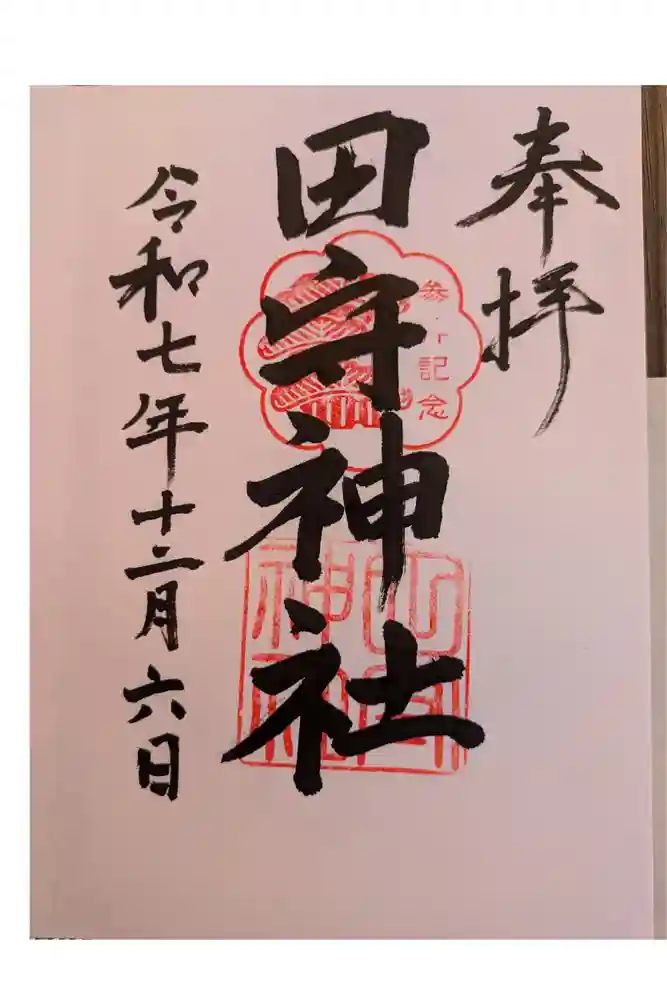 奉拝
田守神社
記念
令和七年十二月六日